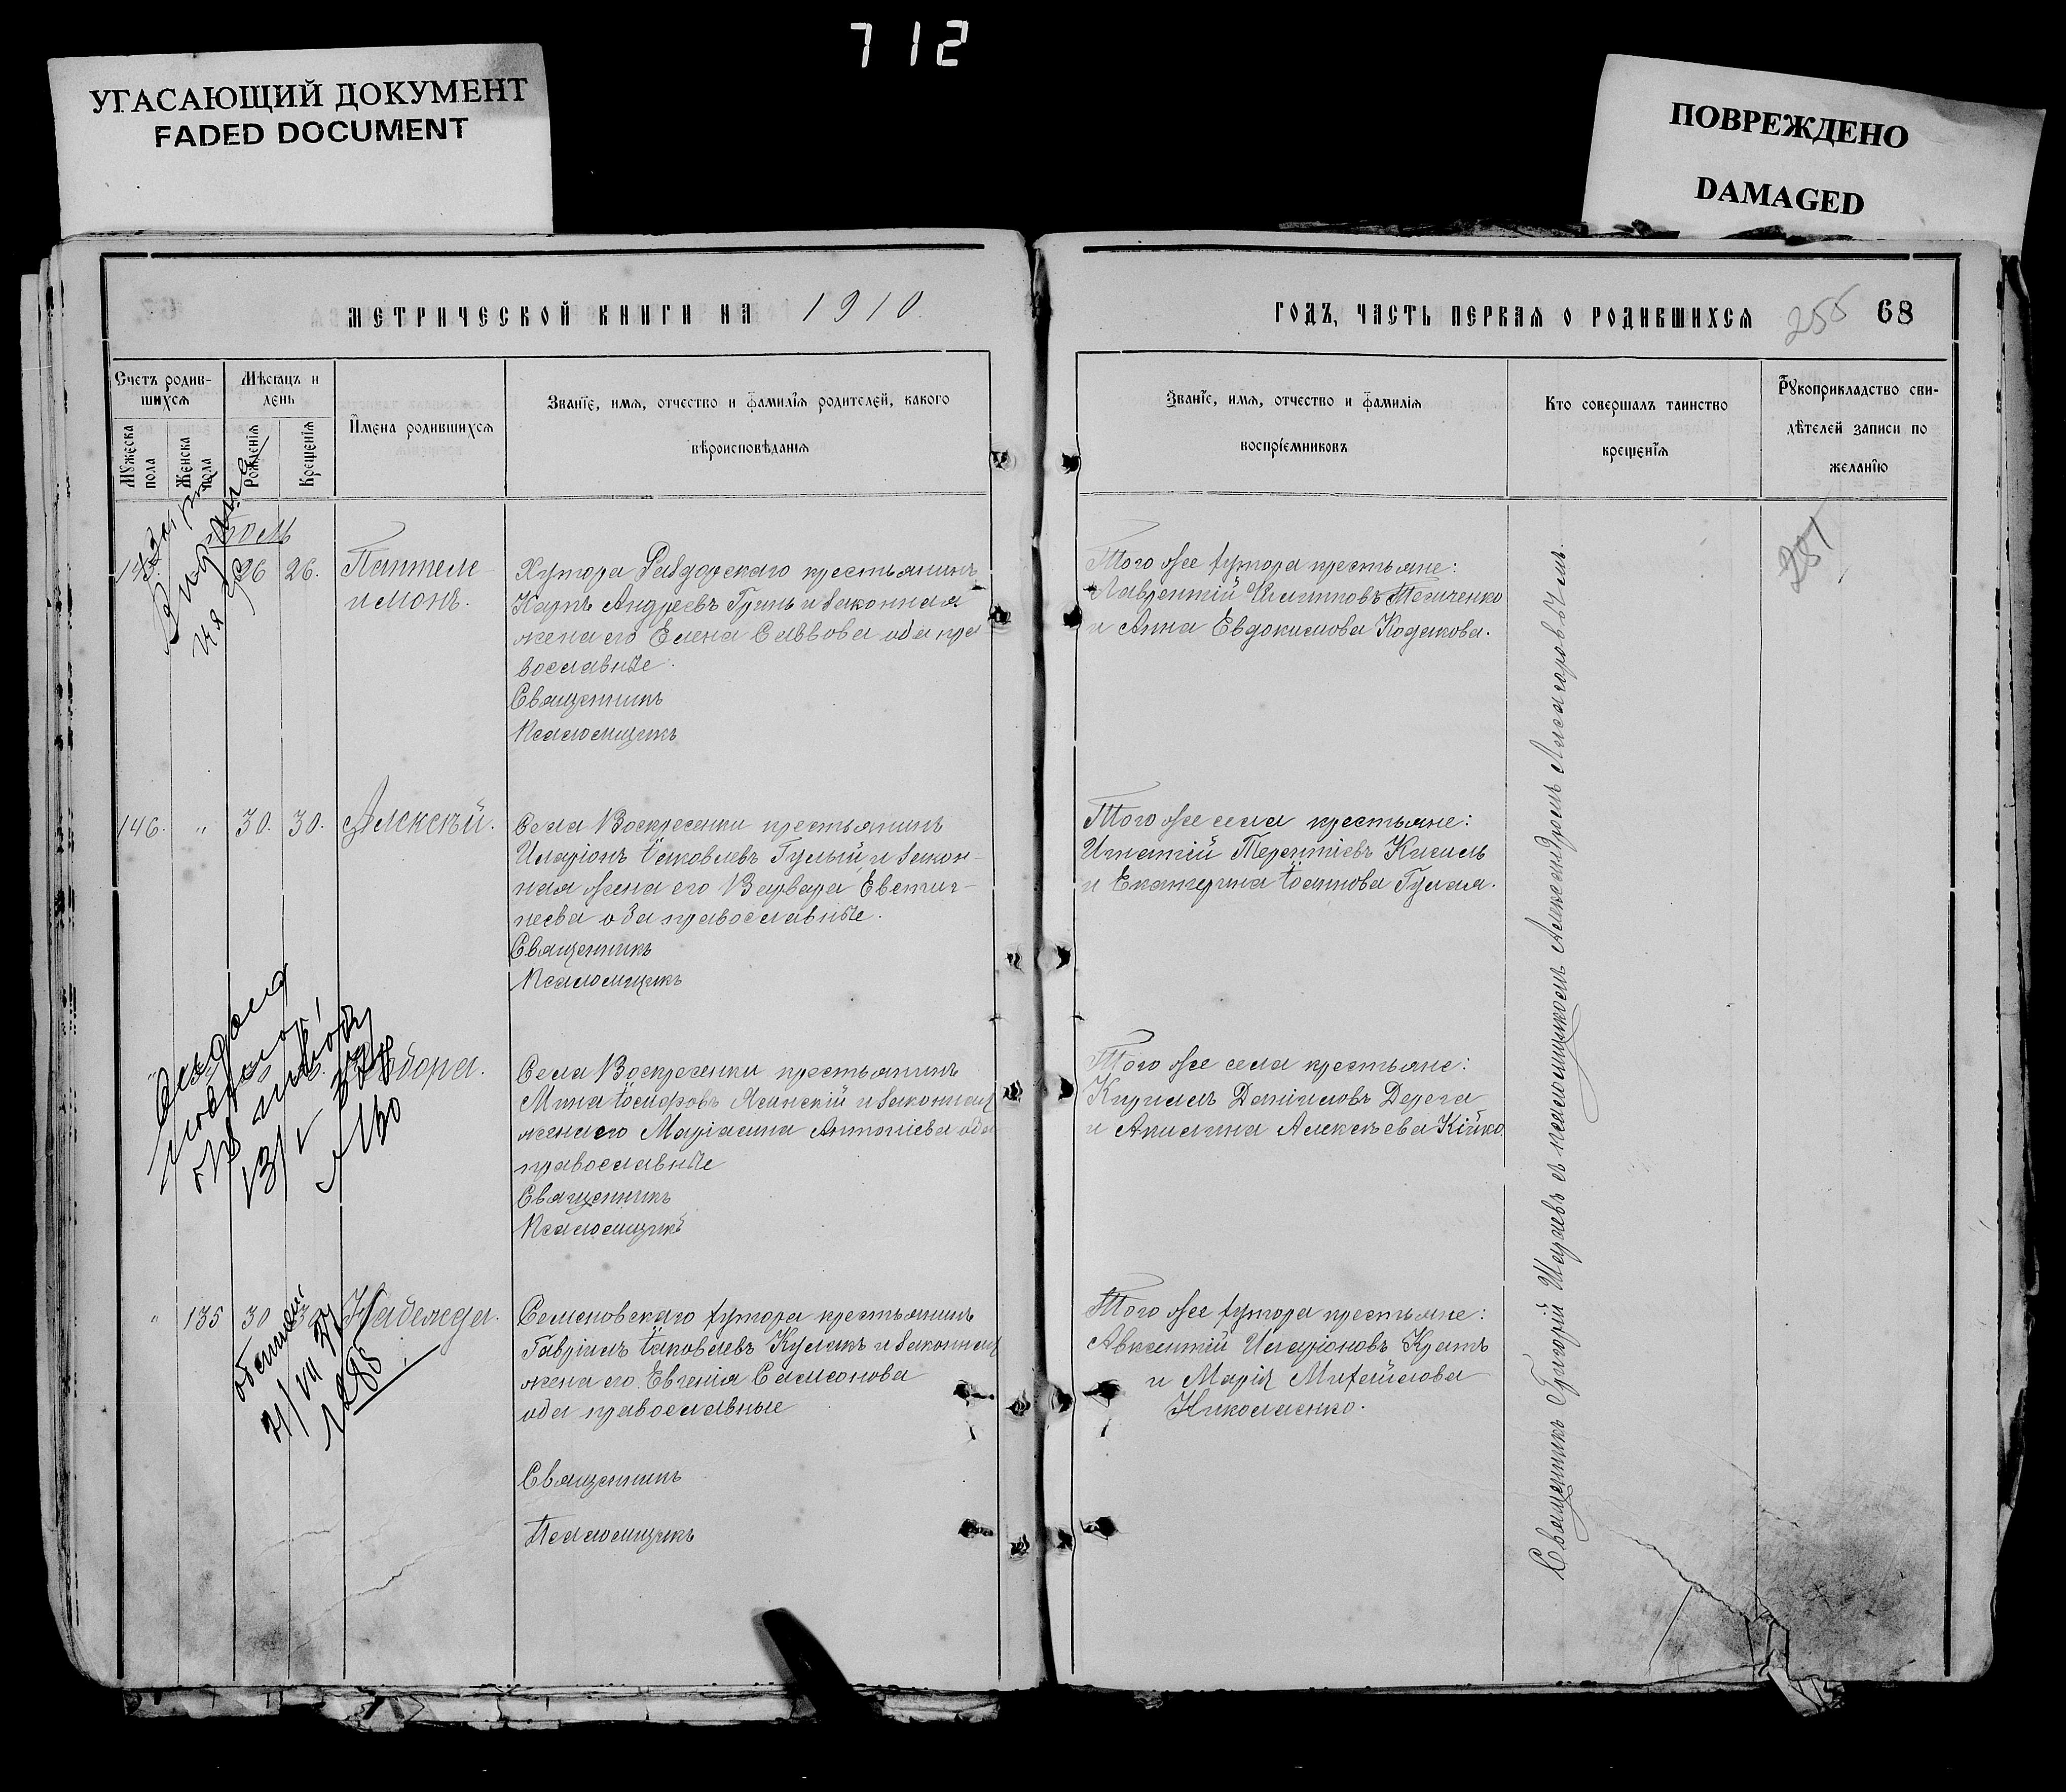 712
УГАСАЮЩИЙ ДОКУМЕНТ
FADED DOCUMENT
ПОВРЕЖДЕНО
DAMAGED
МЕТРИЧЕСКОЙ КНИГИ НА 1910
ГОДЪ, ЧАСТЬ ПЕРВАЯ О РОДИВШИХСЯ
255 68
Счетъ родив-
шихся
Мужеска пола
Женска пола
Мѣсяцъ и
день
Рожденія
Крещенія
Имена родившихся
Званіе, имя, отчество и фамилія родителей, какого
вѣроисповѣданія
Званіе, имя, отчество и фамилія
воспріемниковъ
Кто совершалъ таинство
крещенія
Рукоприкладство сви-
дѣтелей записи по
желанію
26 26.
Пантеле-
имонъ.
Хутора Раздорскаго крестьянинъ
Карпъ Андреевъ Гринь и законная
жена его Елена Саввова оба пра
вославные.
Священникъ
Псаломщикъ
Того же хутора крестьяне:
Лаврентій Филиповъ
и Анна Евдокимова Кодакова.
281
146. " 30. 30. Алексѣй.
Села Воскресенки крестьянинъ
Иларіонъ Іаковлевъ Гулый и закон-
ная жена его Варвара Евстиг-
неева оба православные.
Священникъ
Псаломщикъ
Того же села крестьяне:
Игнатій Терентіевъ Кисиль
и Екатерина Іоаннова Гулая.
Села Воскресенки крестьянинъ
Мина Іосифовъ и законная
жена его Маріамна Антоніева оба
православные
Священникъ
Псаломщикъ
Того же села крестьяне:
Кирилъ Даніиловъ Дерега
и Акилина Алексѣева Кійко.
" 135 30 Надежда.
Семеновскаго хутора крестьянинъ
Гавріилъ Іаковлевъ Кулакъ и законная
жена его Евгенія Самсонова
оба православные
Священникъ
Псаломщикъ
Того же хутора крестьяне:
Авксентій Иларіоновъ Кратъ
и Марія Михайлова
Николаенко.
Священникъ Григорій съ псаломщикомъ Александромъ